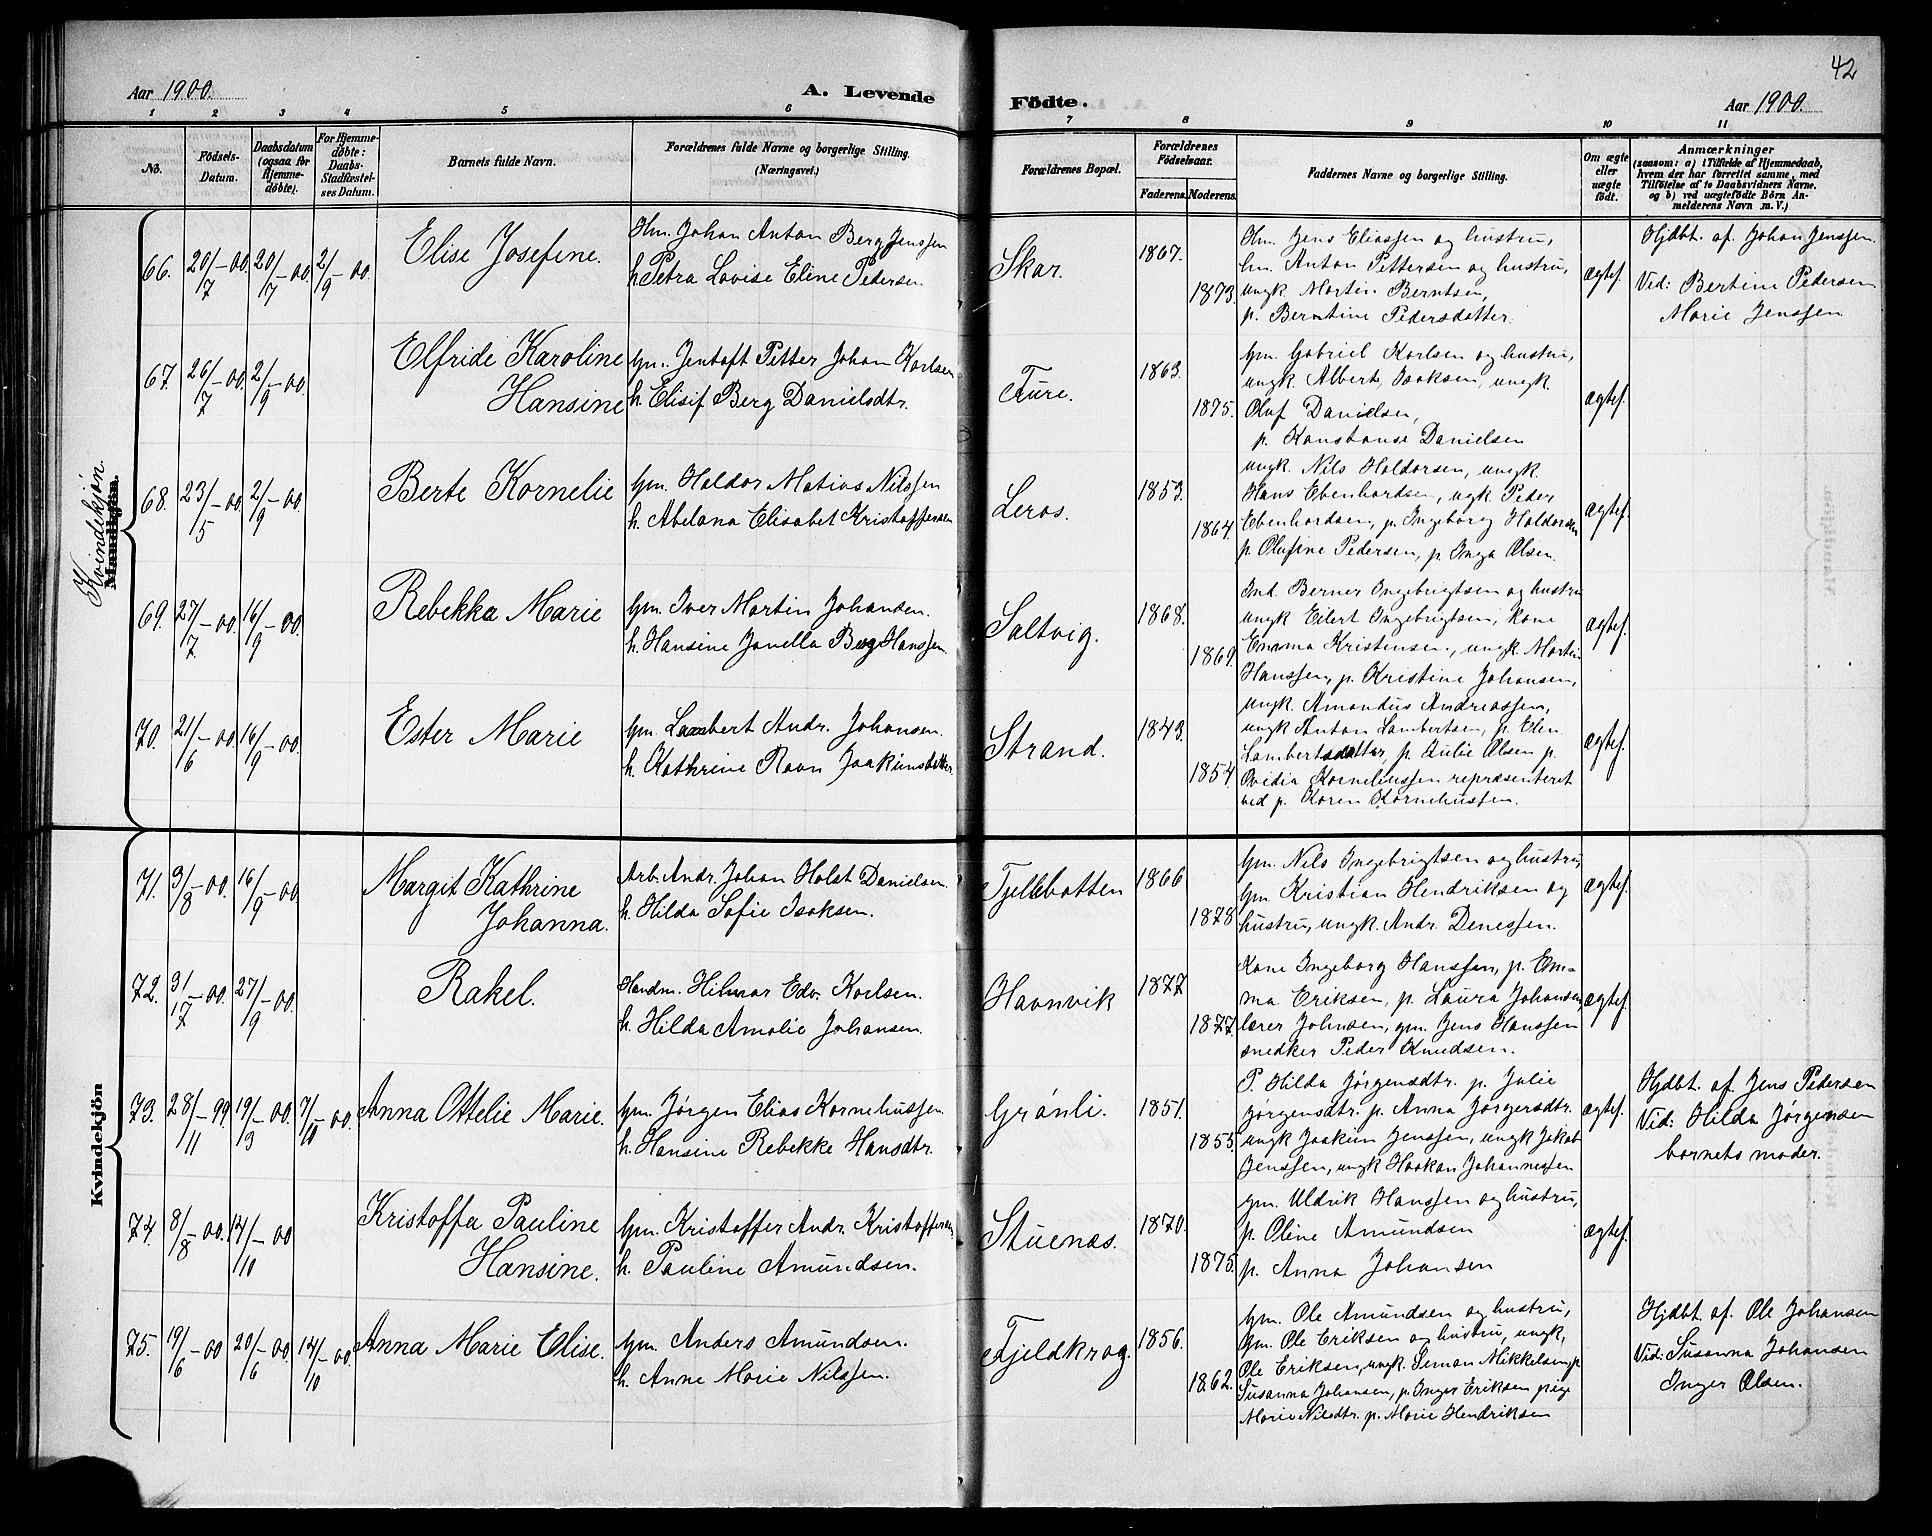 42
Aar 1900.
A. Levende
Födte.
Aar 1900.
1 2 3 4 5 6 7 8 9 10 11
No.
Födsels-
Datum.
Daabsdatum
(ogsaa for
Hjemme-
döbte).
For Hjemme-
döbte:
Daabs-
Stadfæstel-
ses Datum.
Barnets fulde Navn.
Forældrenes fulde Navne og borgerlige Stilling.
(Næringsvei.)
Forældrenes Bopæl.
Forældrenes
Födselsaar.
Faderens.
Moderens.
Faddernes Navne og borgerlige Stilling.
Om ægte
eller
uægte
födt.
Anmærkninger
(saasom: a) i Tilfælde af Hjemmedaab,
hvem der har forrettet samme, med
Tilföielse af to Daabsvidners Navne,
og b) ved uægtefödte Börn An-
melderens Navn m. V.)
Kvindekjön.
Mandkjön.
66. 20/7-00. 20/7-00. 2/9-00.
Elise Josefine.
Hm. Johan Anton Berg Jenssen
h. Petra Lovise Eline Pedersen
Skar.
1867.
1873.
Hm. Jens Eliassen og hustru,
hm. Anton Pettersen og hustru,
ungk. Martin Berntsen,
p. Berntine Pedersdatter.
ægtef.
Hjdbt. af Johan Jenssen.
Vid: Bertine Pedersen
Marie Jenssen
67. 26/7-00. 2/9-00.
Elfride Karoline
Hansine
Gm. Jentoft Petter Johan Karlsen
h. Elisif Berg Danielsdtr.
Fure.
1863.
1875.
Gm. Gabriel Karlsen og hustru,
ungk. Albert Isaksen, ungk
Oluf Danielsen,
p. Konstanse Danielsen
ægtef.
68. 23/5-00. 2/9-00.
Berte Kornelie
Gm. Haldor Matias Nilssen
h. Abelona Elisabet Kristoffersen
Leros.
1853.
1864.
ungk. Nils Haldorsen, ungk
Hans Ebenhardsen, ugk. Peder
Ebenhardsen, p. Ingeborg Haldorsen
p. Olufine Pedersen, p. Inga Olsen.
ægtef.
69. 27/7-00. 16/9-00.
Rebekka Marie
Gm. Iver Martin Johansen.
h. Hansine Janella Berg Hanssen.
Saltvig.
1868.
1869.
Ind. Berner Ingebrigtsen og hustru
ungk Eilert Ingebrigtsen, kone
Emma Kristensen., ungk. Martin
Hanssen, p. Kristine Johansen,
ægtef.
70. 21/6-00. 16/9-00.
Ester Marie
Gm. Lambert Andr. Johansen.
h. Kathrine Ravn Joakimsdatter
Strand.
1843.
1854.
ungk. Amandus Andreassen,
ungk Anton Lambertsen, p. Elen
Lambertsdatter, p. Julie Olsen p.
Ovidia Korneliussen repræsenteret
ved p. Karen Korneliussen.
ægtef.
Kvindekjön
71. 9/8-00. 16/9-00.
Margit Kathrine
Johanna.
Arb. Andr. Johan Holst Danielsen.
h. Hilda Sofie Isaksen.
Fjeldbotten
1866
1878
Gm. Nils Ingebrigtsen og hustru,
Gm. Kristian Hendriksen og
hustru, ungk. Andr. Denessen.
ægtef.
72. 31/7-00. 27/9-00.
Rakel.
Handm. Hilmar Edv. Karlsen.
h. Hilda Amalie Johansen.
Havnvik
1877
1877.
Kone Ingeborg Hanssen, p. Em-
ma Eriksen, p. Laura Johansen,
lærer Johnsen, gm. Jens Hanssen
snedker Peder Knudsen.
ægtef.
73. 28/11-99. 19/3-00. 7/10-00.
Anna Ottelie Marie.
Gm. Jørgen Elias Korneliussen
h. Hansine Rebekke Hansdtr.
Grønli.
1851.
1855.
P. Hilda Jørgensdtr. p. Julie
Jørgensdtr. p. Anna Jørgensdtr.
ungk Joakim Jenssen, ungk Jakob
Jenssen, ungk Haakon Johannessen
ægtef.
Hjdbt. af Jens Pedersen
Vid: Hilda Jørgensen
barnets moder.
74. 8/8-00. 14/10-00
Kristoffa Pauline
Hansine.
Gm. Kristoffer Andr. Kristoffersen
h. Pauline Amundsen.
Stuenæs.
1870.
1875.
gm. Uldrik Hanssen og hustru,
p. Oline Amundsen
p. Anna Johansen
ægtef.
75. 19/6-00 20/6-00. 14/10-00.
Anna Marie Elise.
Gm. Anders Amundsen.
h. Anne Marie Nilssen.
Fjeldkrog.
1856.
1862.
Gm. Ole Amundsen og hustru,
Gm. Ole Eriksen og hustru, ungk,
Ole Eriksen, ungk. Simon Mikkelsen, p
Susanna Johansen, p. Inger Eriksen pige
Marie Nilsdtr. p. Marie Hendriksen
Hjdbt. af Ole Johansen
Vid: Susanna Johansen
Inger Olsen.